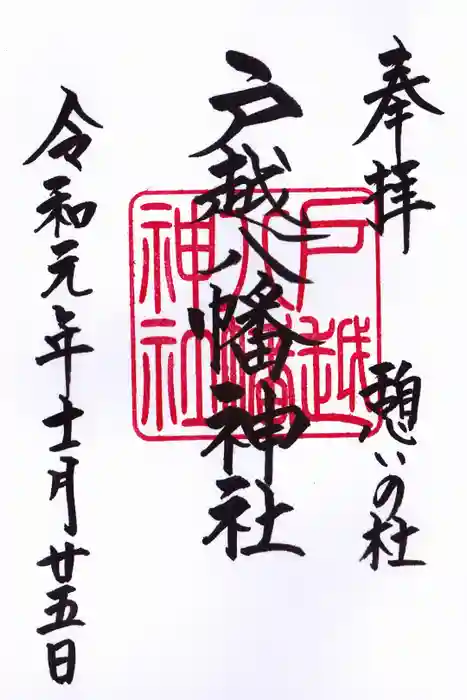 奉拝
憩いの杜
戸越八幡神社
戸越八幡神社
令和元年十一月廿五日